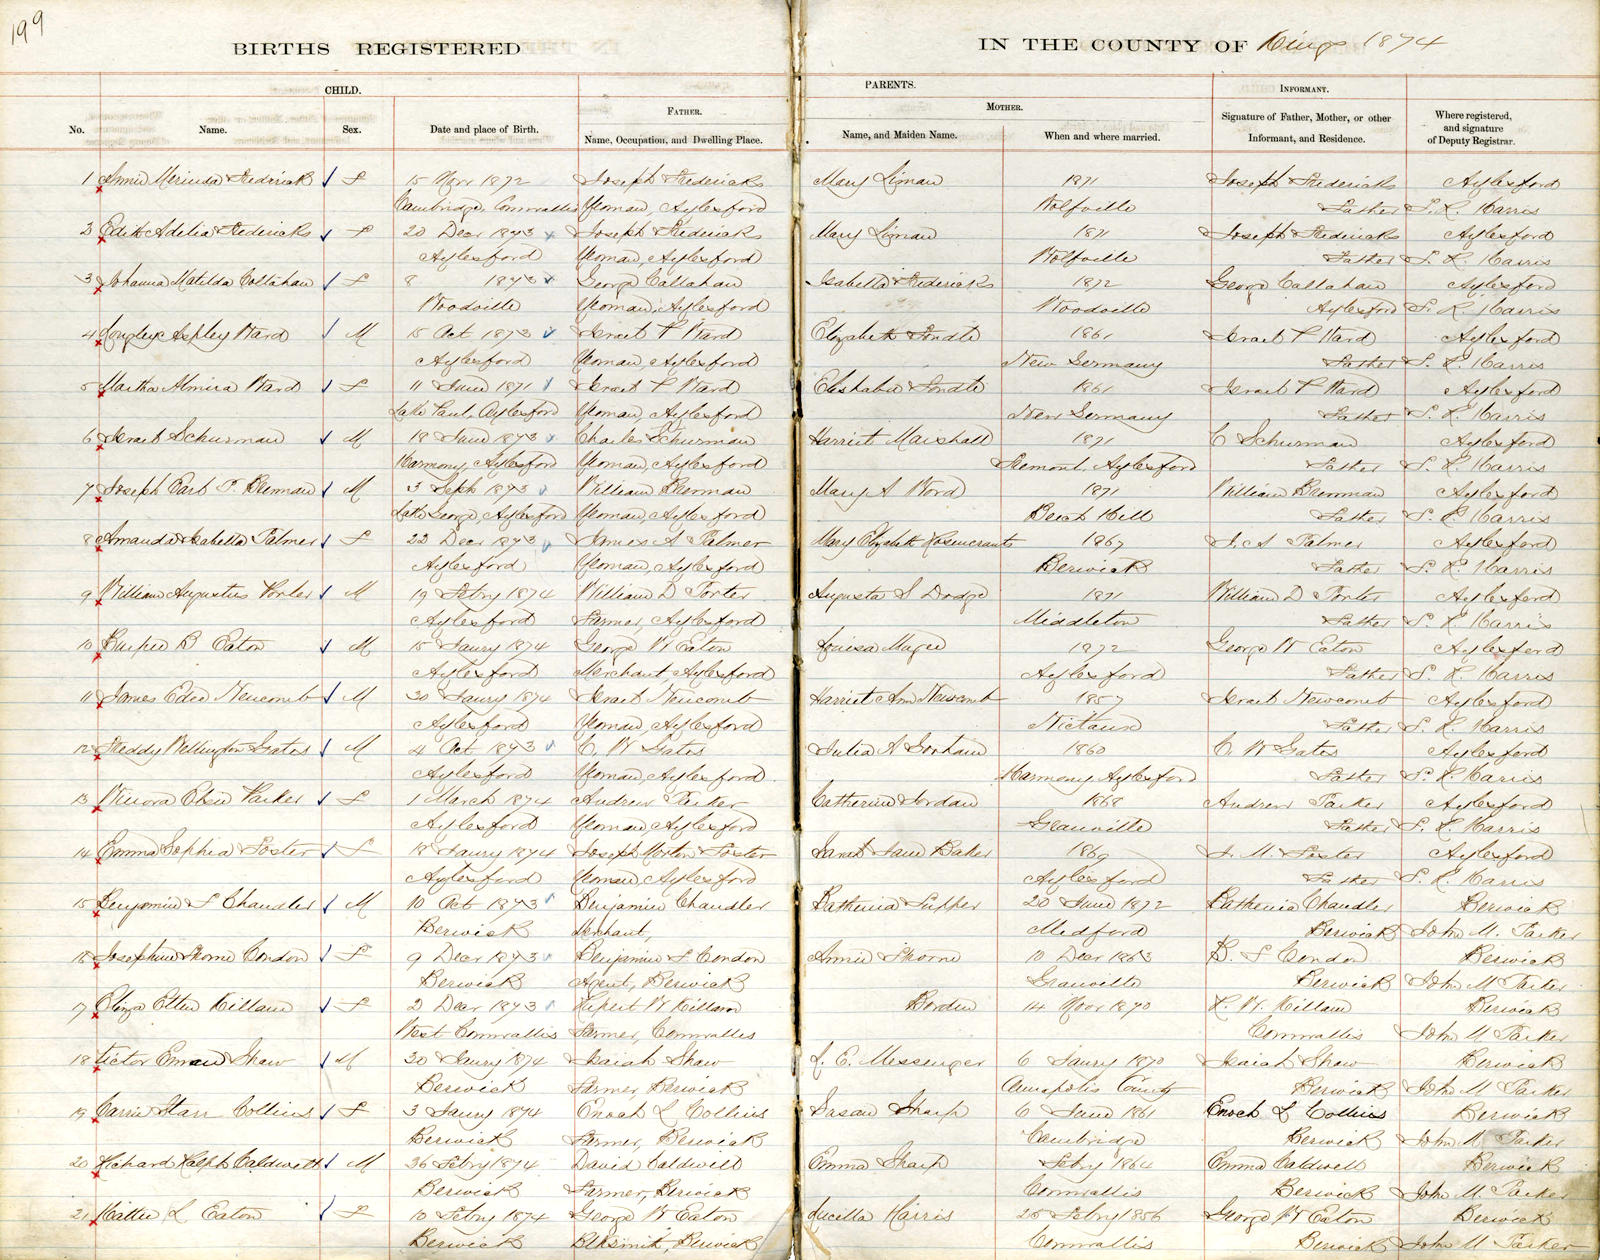 199
BIRTHS REGISTERED IN THE COUNTY OF Kings 1874
CHILD. PARENTS. INFORMANT.
FATHER. MOTHER.
No. Name. Sex. Date and place of Birth. Name, Occupation, and Dwelling Place. Name, and Maiden Name. When and where married. Signature of Father, Mother, or other Informant, and Residence. Where registered, and signature of Deputy Registrar.
1 Annie Merinda Fredericks F 15 Novr 1872 Joseph Fredericks Mary Liman 1871 Joseph Fredericks Aylesford
Cambridge, Cornwallis Yeoman, Aylesford Wolfville Father S. L. Harris
2 Edith Adelia Fredericks F 20 Decr 1873 Joseph Fredericks Mary Liman 1871 Joseph Fredericks Aylesford
Aylesford Yeoman, Aylesford Wolfville Father S. L. Harris
3 Johanna Matilda Callahan F 8 1873 George Callahan Isabella Fredericks 1872 George Callahan Aylesford
Woodville Yeoman, Aylesford Woodville Aylesford S. L. Harris
4 Aspley Ward M 15 Oct 1873 Israel P Ward Elizabeth 1861 Israel P Ward Aylesford
Aylesford Yeoman, Aylesford New Germany Father S. L. Harris
5 Martha Almira Ward F 11 June 1871 Israel P Ward 1861 Israel P Ward Aylesford
Lake Paul, Aylesford Yeoman, Aylesford New Germany Father S. L. Harris
6 Israel Schurman M 18 June 1873 Charles Schurman Harriet Marshall 1871 C Schurman Aylesford
Harmony, Aylesford Yeoman, Aylesford Tremont, Aylesford Father S. L. Harris
7 Joseph Brennan M 3 Sept 1873 William Brennan Mary A Word 1871 William Brennan Aylesford
Lake George, Aylesford Yeoman, Aylesford Beech Hill Father S. L. Harris
8 Amanda Isabella Palmer F 22 Decr 1873 James A Palmer Mary Elizabeth Rosencrants 1867 J. A Palmer Aylesford
Aylesford Yeoman, Aylesford Berwick Father S. L. Harris
9 William Augustus Porter M 19 Febry 1874 William D Porter Augusta S Dodge 1871 William D Porter Aylesford
Aylesford Farmer, Aylesford Middleton Father S. L. Harris
10 Burpee B Eaton M 15 Janry 1874 George W Eaton Louisa Magee 1872 George W Eaton Aylesford
Aylesford Merchant, Aylesford Aylesford Father S. L. Harris
11 James Newcomb M 30 Janry 1874 Israel Newcomb Harriet Ann Newcomb 1857 Israel Newcomb Aylesford
Aylesford Yeoman, Aylesford Nictaux Father S. L. Harris
12 Freddy Wellington Gates M 4 Oct 1873 C. W Gates Julia A Gorham 1860 C. W Gates Aylesford
Aylesford Yeoman, Aylesford Harmony, Aylesford Father S. L. Harris
13 Parker F 1 March 1874 Andrew Parker Catherine Jordan 1868 Andrew Parker Aylesford
Aylesford Yeoman, Aylesford Granville Father S. L. Harris
14 Emma Sophia Foster F 18 Janry 1874 Joseph Morton Foster Jane Baker 1869 J. M. Foster Aylesford
Aylesford Yeoman, Aylesford Aylesford Father S. L. Harris
15 Benjamin S Chandler M 10 Oct 1873 Benjamin Chandler Bathenia Tupper 20 June 1872 Bathenia Chandler Berwick
Berwick Medford Berwick John M. Parker
16 Josephine Thorne Condon F 9 Decr 1873 Benjamin S Condon Annie Thorne 10 Decr 1863 B. S Condon Berwick
Berwick Agent, Berwick Granville Berwick John M. Parker
17 Eliza Ellen Killam F 2 Decr 1873 Rupert W Killam Borden 14 Novr 1870 R. W. Killam Berwick
West Cornwallis Farmer, Cornwallis Cornwallis John M Parker
18 Victor Shaw M 30 Janry 1874 Isaiah Shaw E. Messenger 6 Janry 1870 Isaiah Shaw Berwick
Berwick Farmer, Berwick Annapolis County Berwick John M Parker
19 Carrie Starr Collins F 3 Janry 1874 Enoch L Collins Susan Sharp 6 June 1861 Enoch L Collins Berwick
Berwick Farmer, Berwick Cambridge Berwick John M Parker
20 Richard Ralph Caldwell M Febry 1874 David Caldwell Emma Sharp Febry 1864 Emma Caldwell Berwick
Berwick Farmer, Berwick Cornwallis Berwick John M Parker
21 Hattie L Eaton F 10 Febry 1874 George W Eaton Lucilla Harris 25 Febry 1856 George W Eaton Berwick
Berwick Blksmith, Berwick Cornwallis Berwick John M Parker